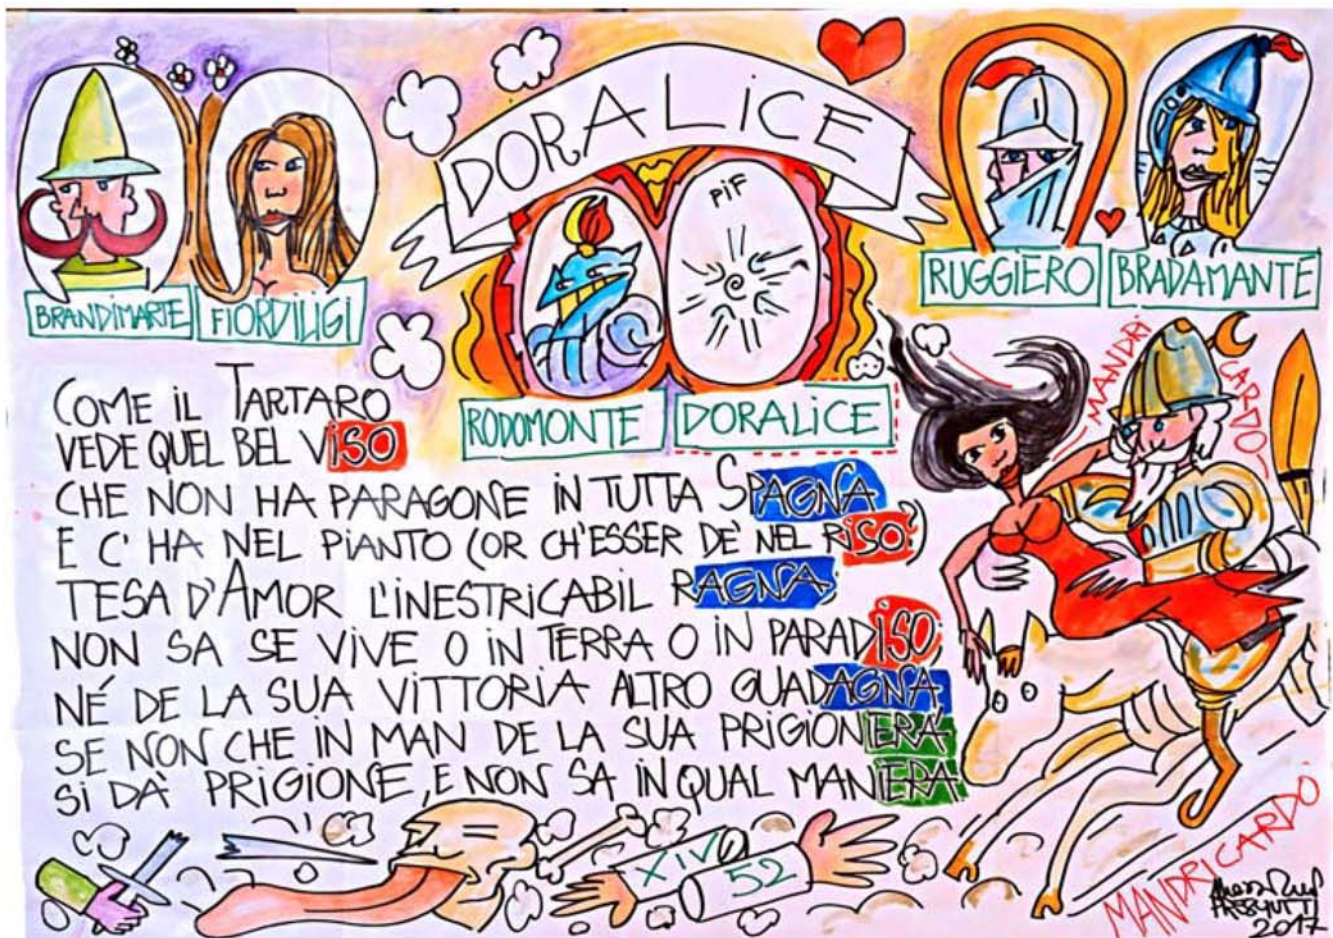 DORALICE
PIF
BRANDIMARTE
FIORDILIGI
RODOMONTE
DORALICE
RUGGIERO
BRADAMANTE
MANDRI
CARDO
COME IL TARTARO
VEDE QUEL BEL VISO
CHE NON HA PARAGONE IN TUTTA SPAGNA
E C'HA NEL PIANTO (OR CH'ESSER DE' NEL RISO?)
TESA D'AMOR L'INESTRICABIL RAGNA;
NON SA SE VIVE O IN TERRA O IN PARADISO,
NÉ DE LA SUA VITTORIA ALTRO GUADAGNA,
SE NON CHE IN MAN DE LA SUA PRIGIONIERA
SI DÀ PRIGIONE, E NON SA IN QUAL MANIERA.
XIV
52
MANDRICARDO
PRESUTTI
2017